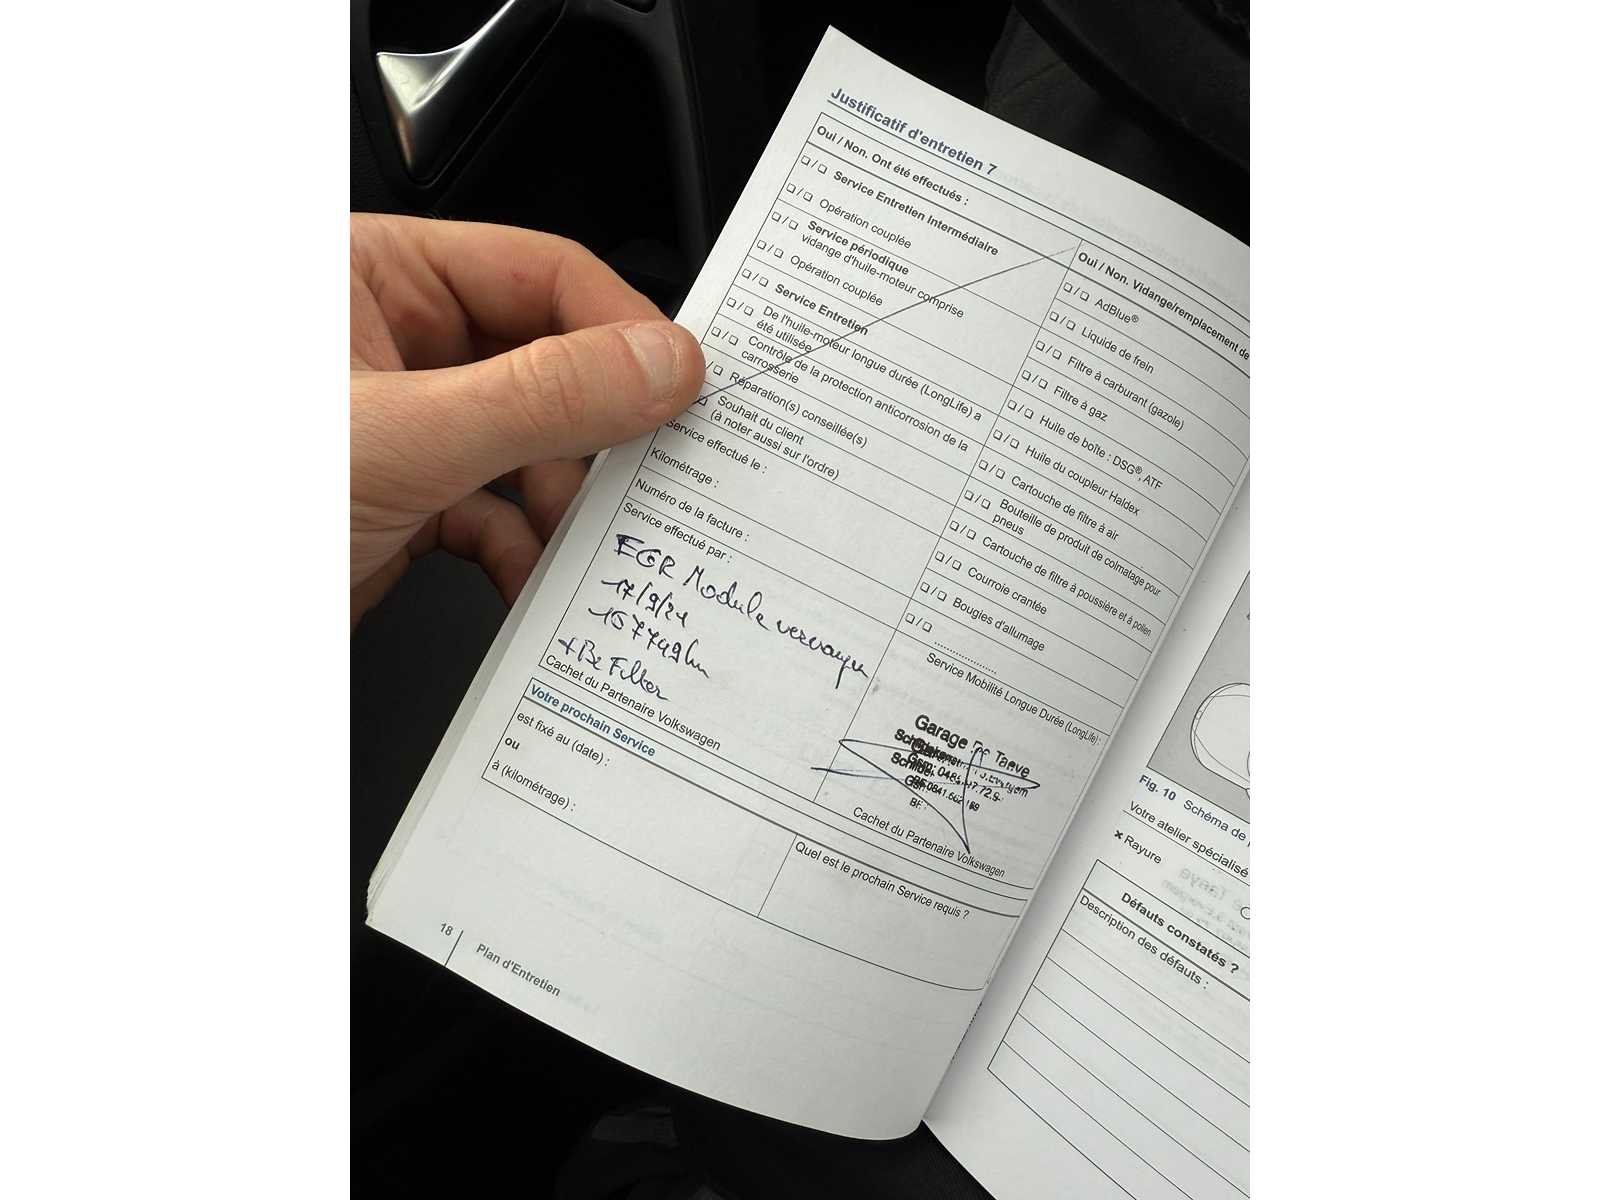 Justificatif d'entretien 7
Oui / Non. Ont été effectués :
❑ / ❑ Service Entretien Intermédiaire
❑ / ❑ Opération couplée
❑ / ❑ Service périodique
vidange d'huile-moteur comprise
❑ / ❑ Opération couplée
❑ / ❑ Service Entretien
❑ / ❑ De l'huile-moteur longue durée (LongLife) a
été utilisée
❑ / ❑ Contrôle de la protection anticorrosion de la
carrosserie
/ ❑ Réparation(s) conseillée(s)
❑ Souhait du client
(à noter aussi sur l'ordre)
Service effectué le :
Kilométrage :
Numéro de la facture :
Service effectué par :
EGR Module vervangen
17/9/21
157749km
Filter
Cachet du Partenaire Volkswagen
Oui / Non. Vidange/remplacement de
❑ / ❑ AdBlue®
❑ / ❑ Liquide de frein
❑ / ❑ Filtre à carburant (gazole)
❑ / ❑ Filtre à gaz
❑ / ❑ Huile de boîte : DSG®, ATF
❑ / ❑ Huile du coupleur Haldex
❑ / ❑ Cartouche de filtre à air
❑ / ❑ Bouteille de produit de colmatage pour
pneus
❑ / ❑ Cartouche de filtre à poussière et à pollen
❑ / ❑ Courroie crantée
❑ / ❑ Bougies d'allumage
❑ / ❑ ....................
Service Mobilité Longue Durée (LongLife):
Garage Taeye
Cachet du Partenaire Volkswagen
Votre prochain Service
est fixé au (date) :
ou
à (kilométrage) :
Quel est le prochain Service requis ?
18
Plan d'Entretien
Fig. 10 Schéma de
Votre atelier spécialisé
× Rayure
Défauts constatés ?
Description des défauts :